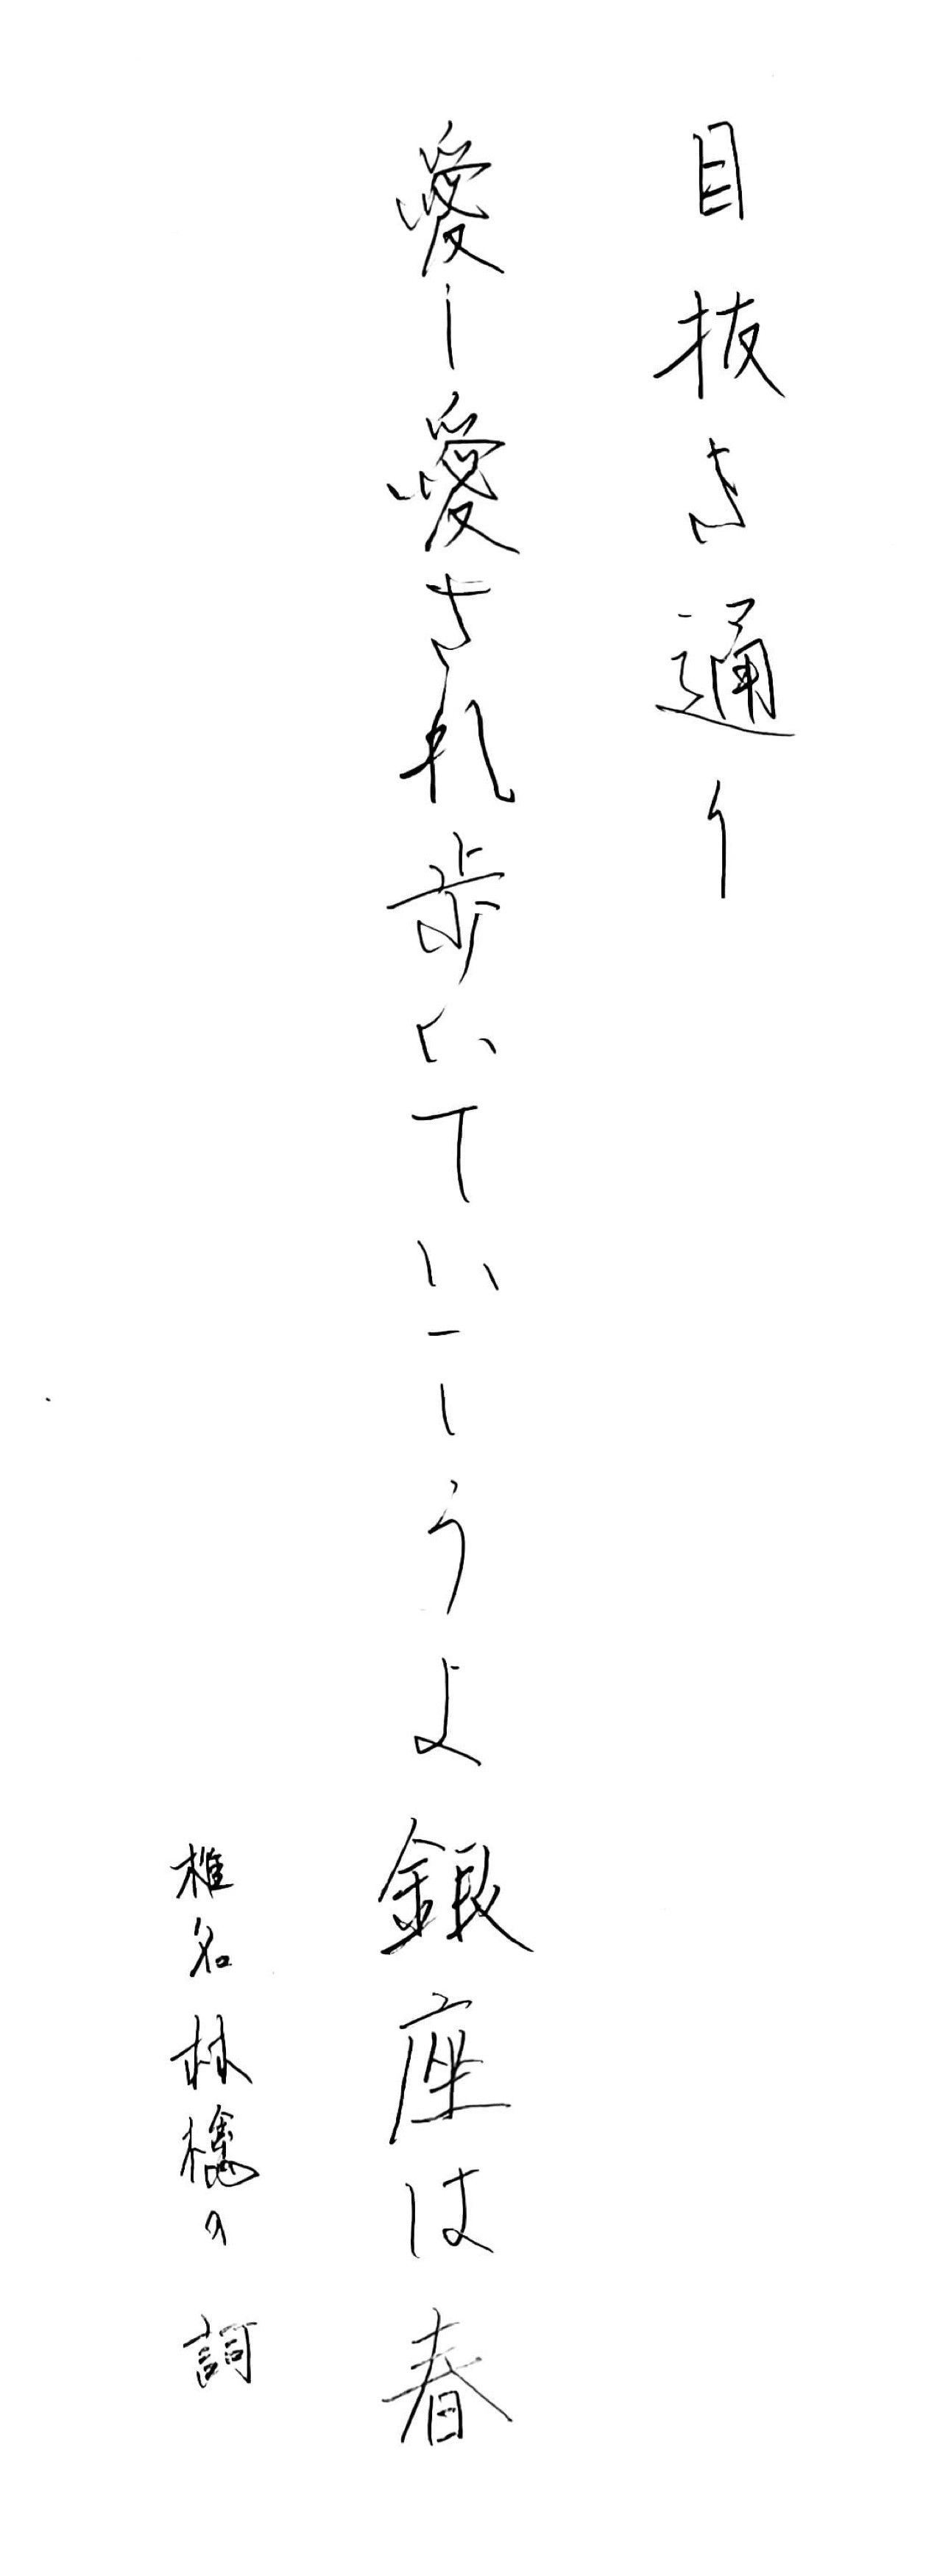 目抜き通り
愛し愛され歩いていこうよ銀座は春
椎名林檎の詞